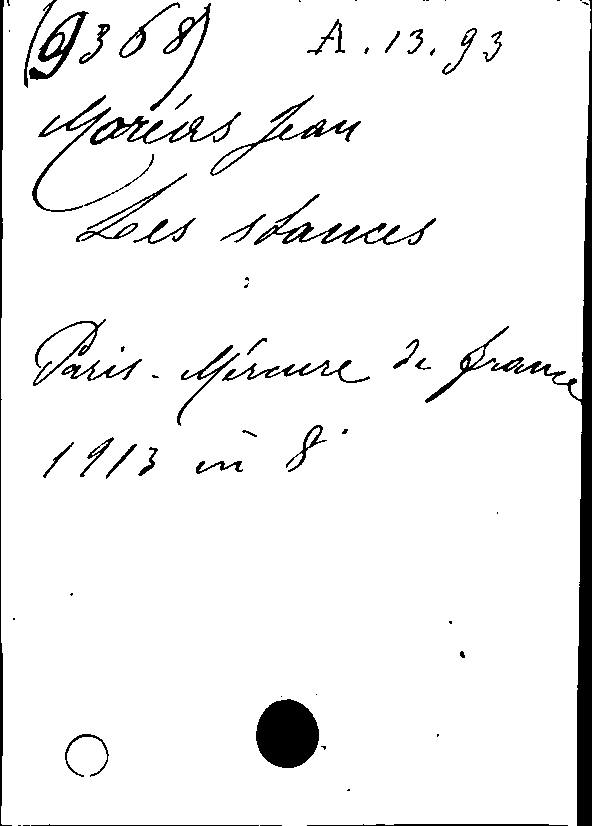 (9368) A.13.93
Moréas Jean
Les stances
Paris - Mércure de france
1913 in 8°